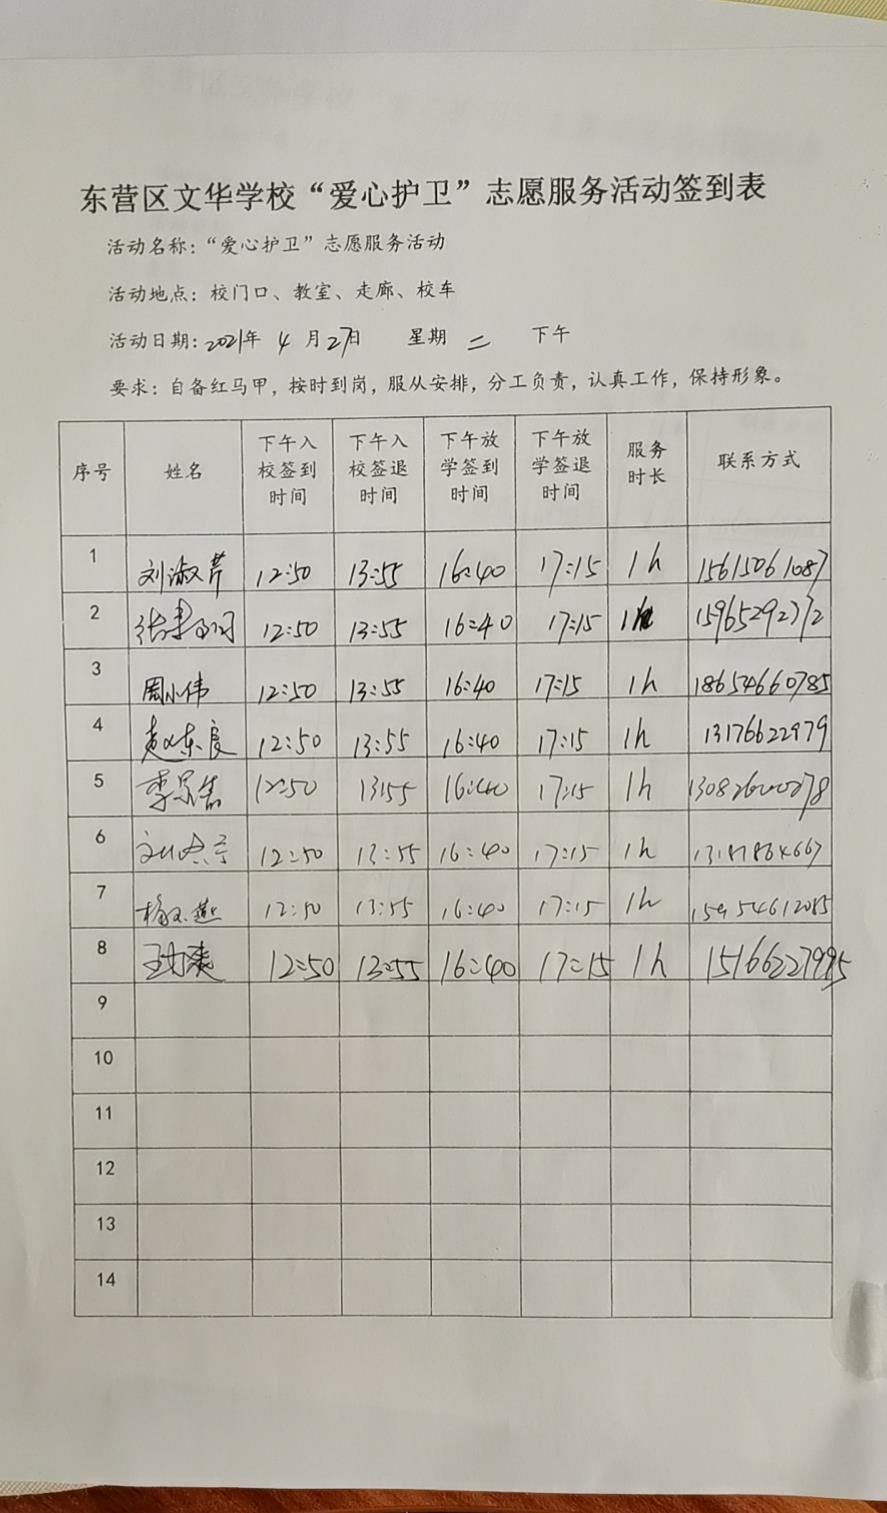 东营区文华学校“爱心护卫”志愿服务活动签到表
活动名称：“爱心护卫”志愿服务活动
活动地点：校门口、教室、走廊、校车
活动日期：2021年 4 月 27日 星期 二 下午
要求：自备红马甲，按时到岗，服从安排，分工负责，认真工作，保持形象。
序号 姓名 下午入校签到时间 下午入校签退时间 下午放学签到时间 下午放学签退时间 服务时长 联系方式
1 刘淑芹 12:50 13:55 16:40 17:15 1h 15615061087
2 12:50 13:55 16:40 17:15 1h 15965292772
3 周小伟 12:50 13:55 16:40 17:15 1h 18654660785
4 赵东良 12:50 13:55 16:40 17:15 1h 13176622979
5 12:50 13:55 16:40 17:15 1h
6 12:50 13:55 16:40 17:15 1h
7 12:50 13:55 16:40 17:15 1h
8 12:50 13:55 16:40 17:15 1h 15166227995
9
10
11
12
13
14